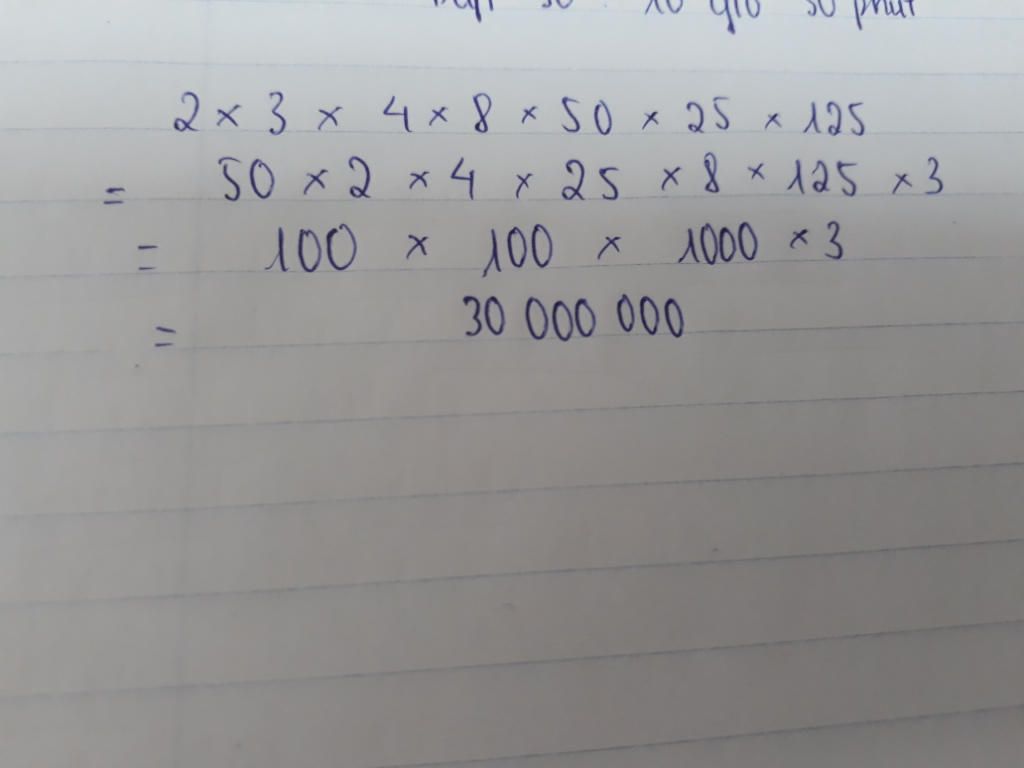 10 giờ 30 phút
2 × 3 × 4 × 8 × 50 × 25 × 125
= 50 × 2 × 4 × 25 × 8 × 125 × 3
= 100 × 100 × 1000 × 3
= 30 000 000